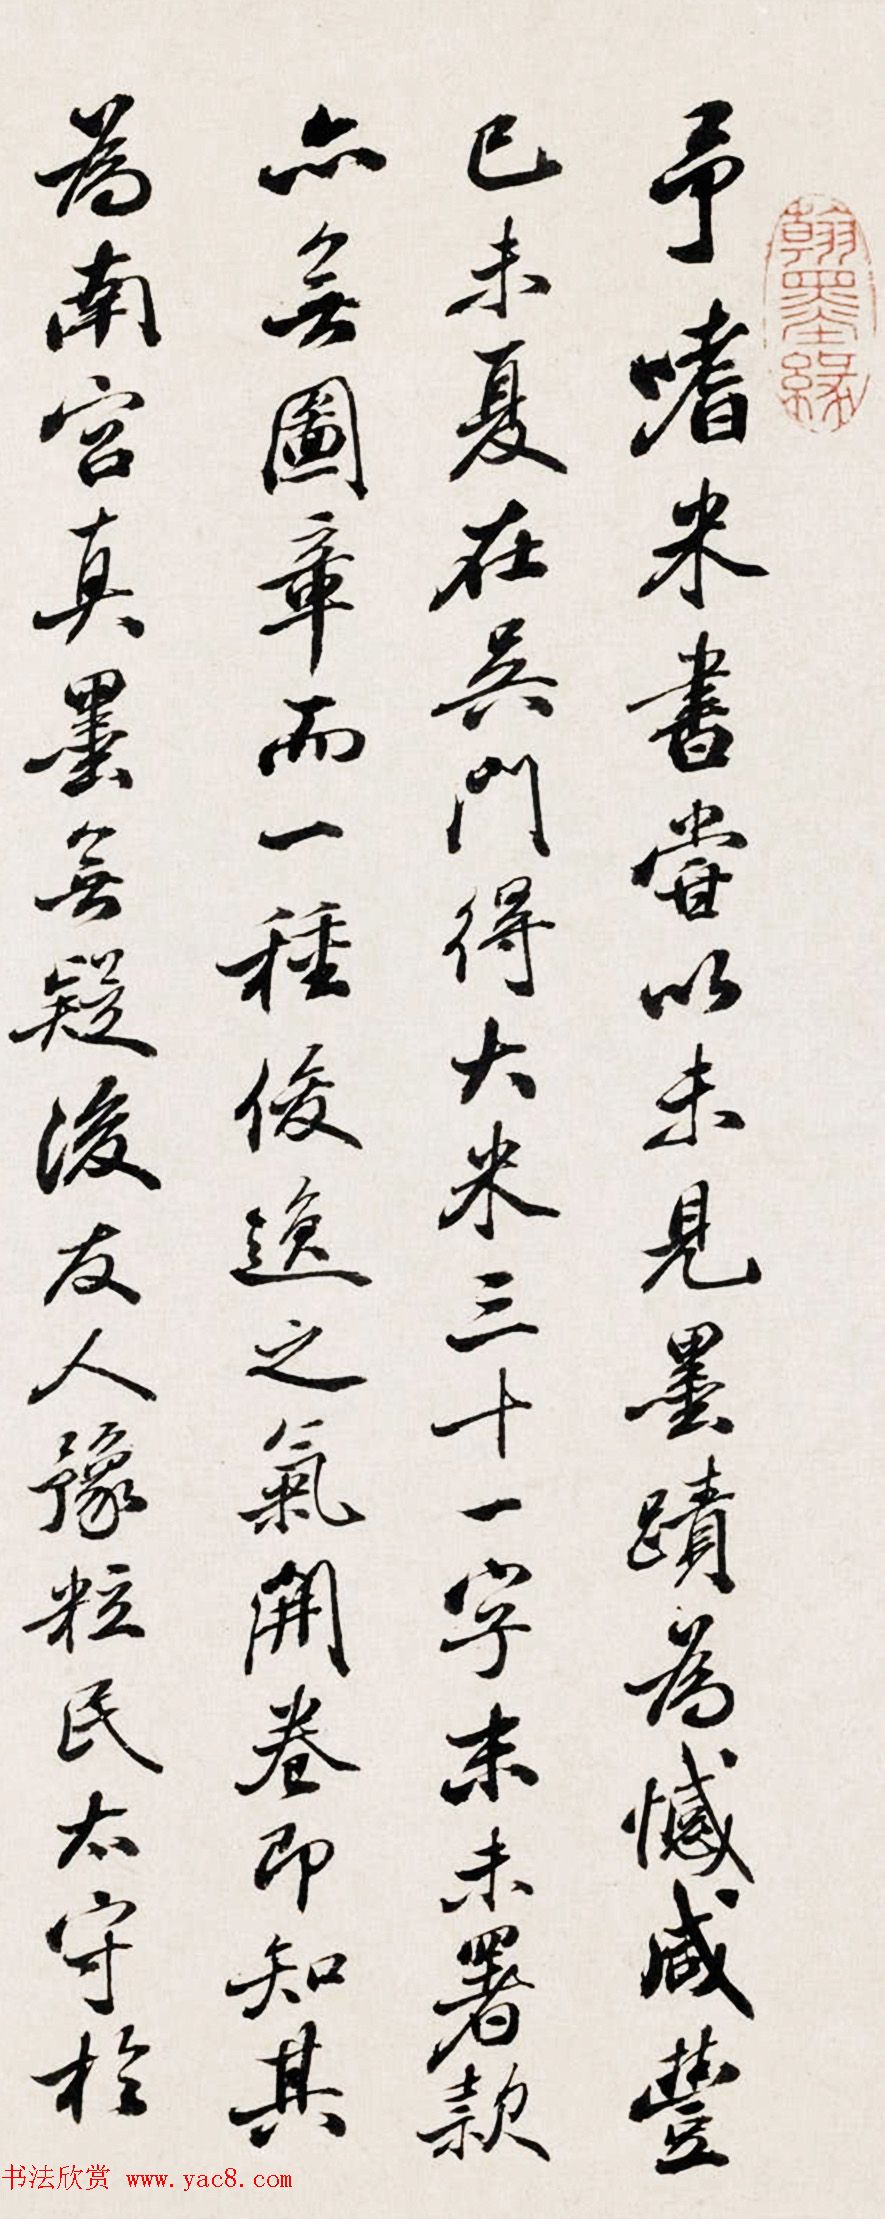 翰墨緣
予嗜米書嘗以未見墨蹟為憾咸豐
已未夏在吳門得大米三十一字末未署款
亦無圖章而一種俊逸之氣開卷即知其
為南宮真墨無疑後友人豫粒民太守於
书法欣赏 www.yac8.com